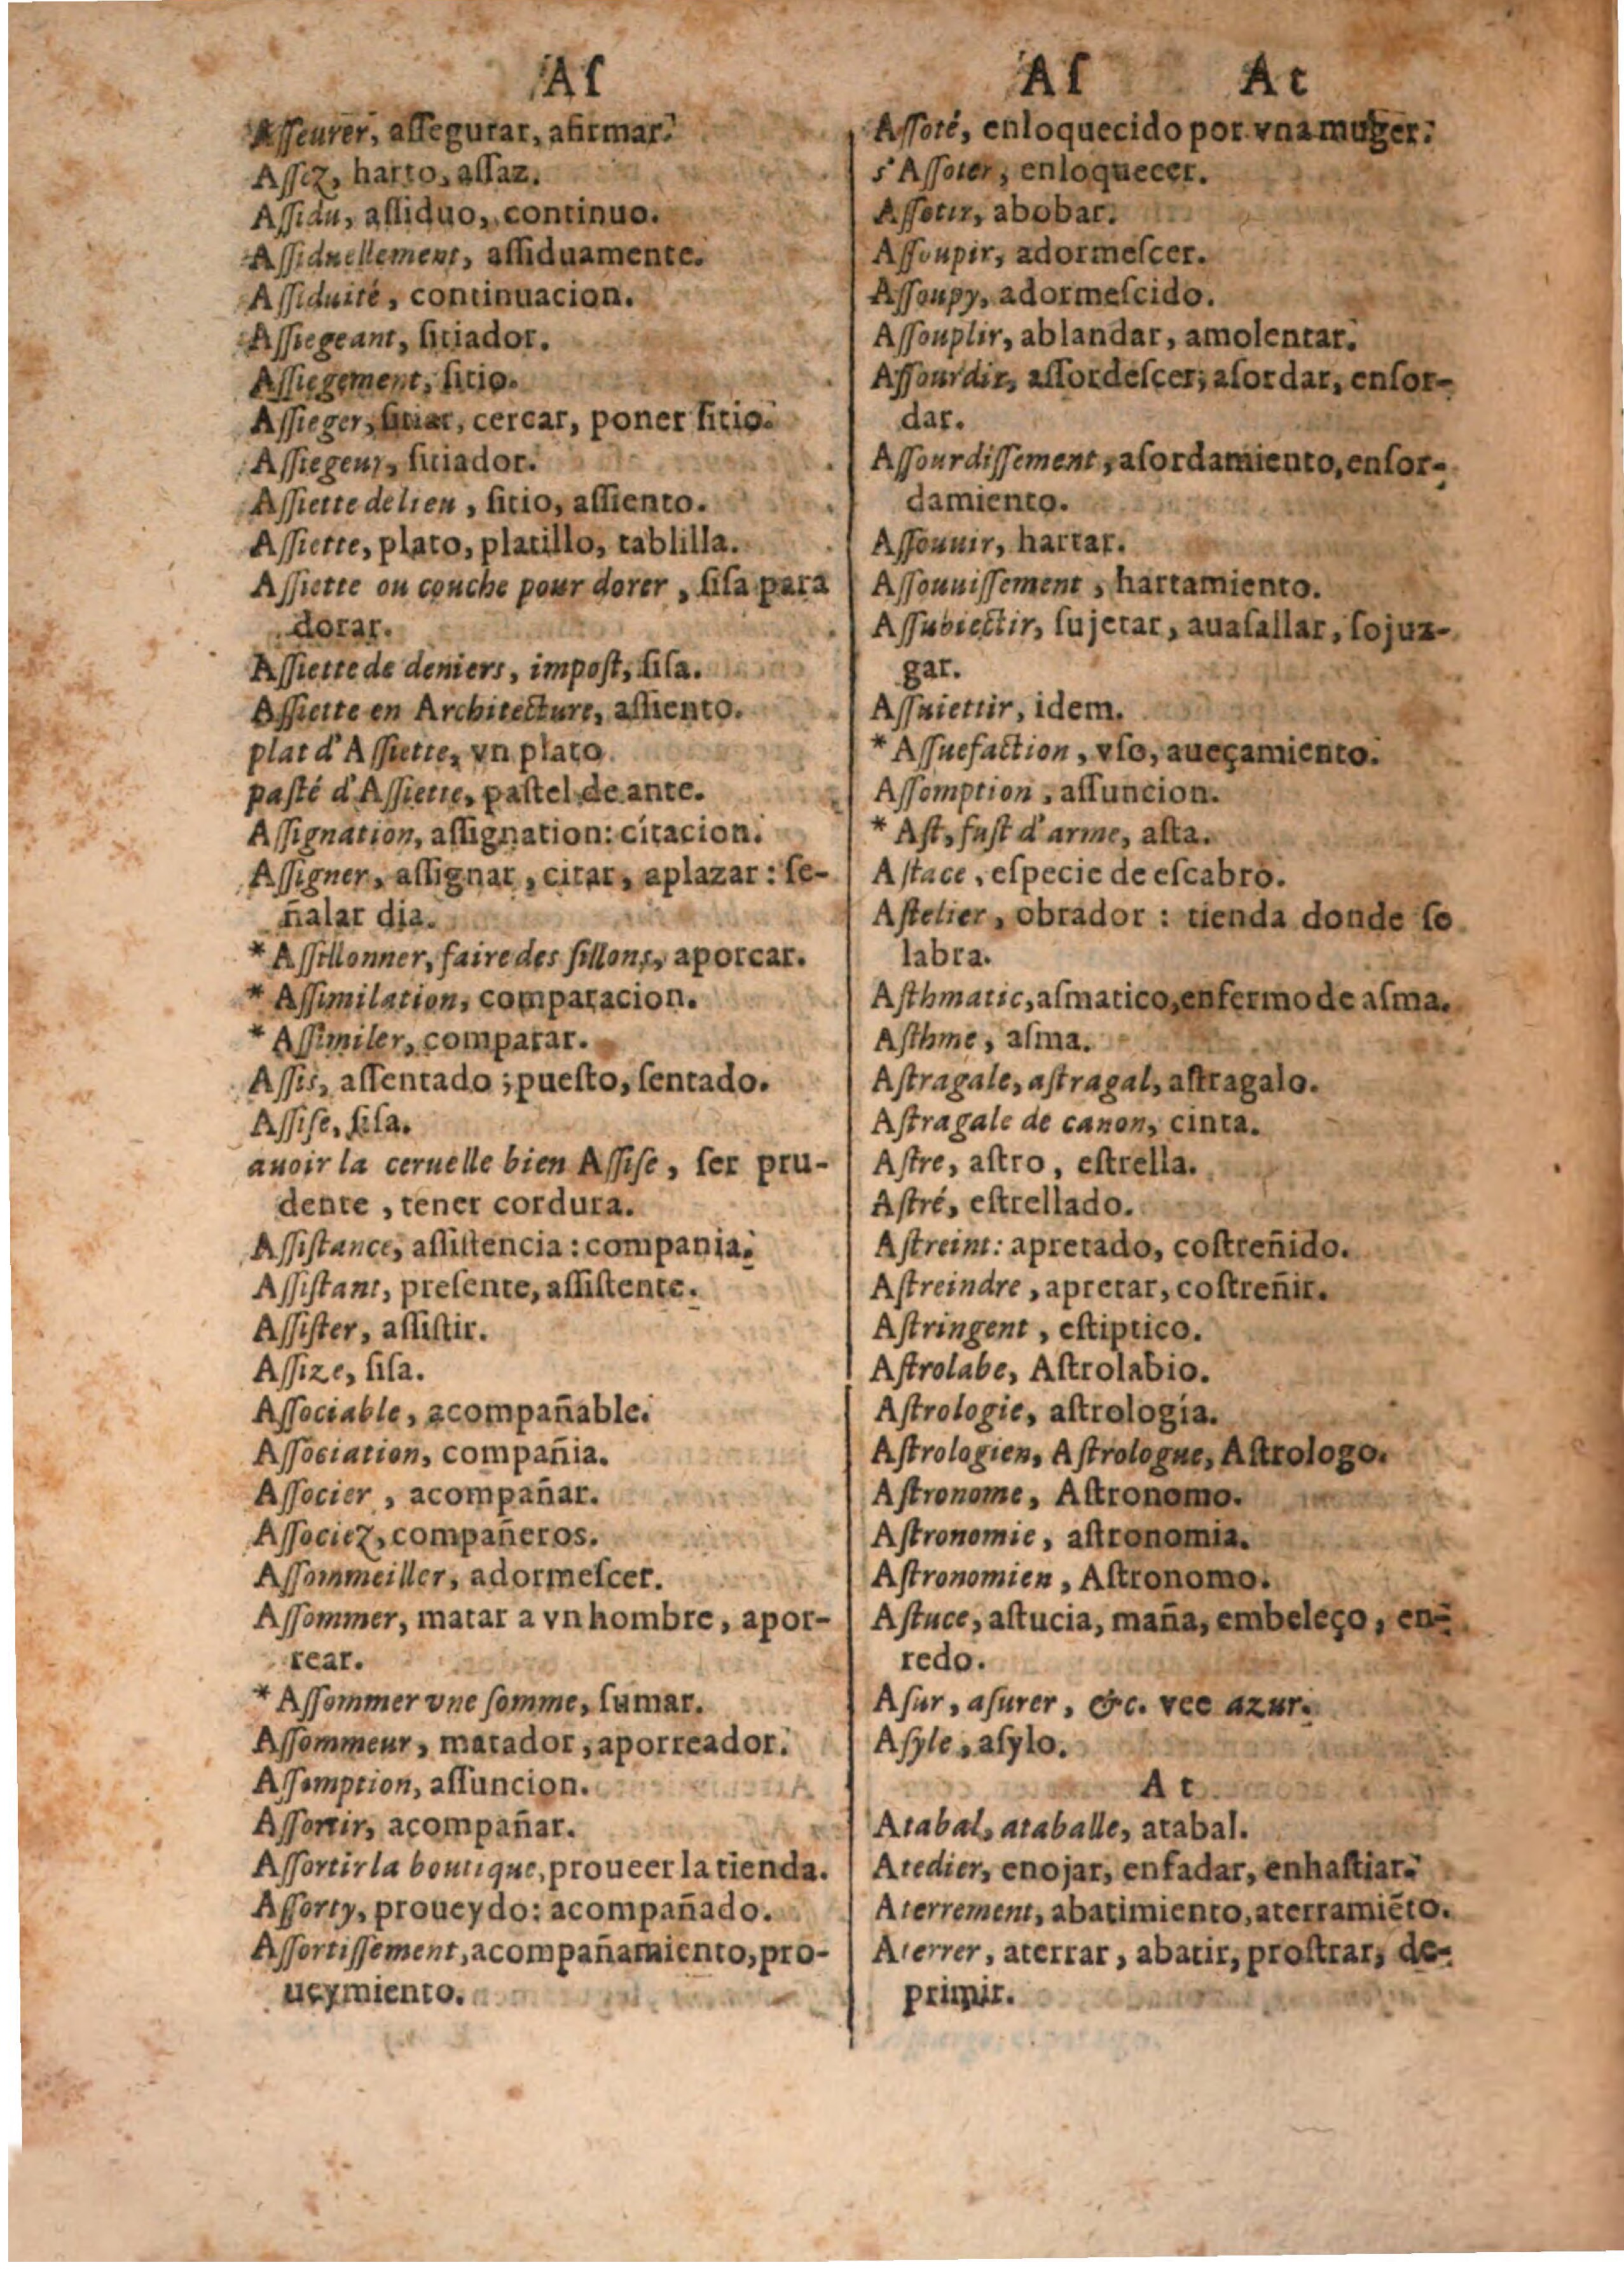 Aſ
Aſſeurer, aſſegurar, afirmar.
Aſſez, harto, aſſaz.
Aſſidu, aſſiduo, continuo.
Aſſiduellement, aſſiduamente.
Aſſiduité, continuacion.
Aſſiegeant, ſitiador.
Aſſiegement, ſitio.
Aſſieger, ſitiar, cercar, poner ſitio.
Aſſiegeur, ſitiador.
Aſſiette de lieu, ſitio, aſſiento.
Aſſiette, plato, platillo, tablilla.
Aſſiette ou couche pour dorer, ſiſa para
dorar.
Aſſiette de deniers, impoſt, ſiſa.
Aſſiette en Architecture, aſſiento.
plat d'Aſſiette, vn plato.
paſté d'Aſſiette, paſtel de ante.
Aſſignation, aſſignation: citacion.
Aſſigner, aſſignar, citar, aplazar: ſe-
ñalar dia.
* Aſſillonner, faire des ſillons, aporcar.
* Aſſimilation, comparacion.
* Aſſimiler, comparar.
Aſſis, aſſentado; pueſto, ſentado.
Aſſiſe, ſiſa.
auoir la ceruelle bien Aſſiſe, ſer pru-
dente, tener cordura.
Aſſiſtance, aſſiſtencia: compania.
Aſſiſtant, preſente, aſſiſtente.
Aſſiſter, aſſiſtir.
Aſſize, ſiſa.
Aſſociable, acompañable.
Aſſociation, compañia.
Aſſocier, acompañar.
Aſſociez, compañeros.
Aſſommeiller, adormeſcer.
Aſſommer, matar a vn hombre, apor-
rear.
* Aſſommer vne ſomme, ſumar.
Aſſommeur, matador, aporreador.
Aſſomption, aſſuncion.
Aſſortir, acompañar.
Aſſortir la boutique, proueer la tienda.
Aſſorty, proueydo: acompañado.
Aſſortiſſement, acompañamiento, pro-
ueymiento.
Aſ At
Aſſoté, enloquecido por vna muger.
s'Aſſoter, enloquecer.
Aſſotir, abobar.
Aſſoupir, adormeſcer.
Aſſoupy, adormeſcido.
Aſſouplir, ablandar, amolentar.
Aſſourdir, aſſordeſcer, aſordar, enſor-
dar.
Aſſourdiſſement, aſordamiento, enſor-
damiento.
Aſſouuir, hartar.
Aſſouuiſſement, hartamiento.
Aſſubiectir, ſujetar, auaſallar, ſojuz-
gar.
Aſſuiettir, idem.
* Aſſuefaction, vſo, aueçamiento.
Aſſomption, aſſuncion.
* Aſt, fuſt d'arme, aſta.
Aſtace, eſpecie de eſcabro.
Aſtelier, obrador: tienda donde ſe
labra.
Aſthmatic, aſmatico, enfermo de aſma.
Aſthme, aſma.
Aſtragale, aſtragal, aſtragalo.
Aſtragale de canon, cinta.
Aſtre, aſtro, eſtrella.
Aſtré, eſtrellado.
Aſtreint: apretado, coſtreñido.
Aſtreindre, apretar, coſtreñir.
Aſtringent, eſtiptico.
Aſtrolabe, Aſtrolabio.
Aſtrologie, aſtrología.
Aſtrologien, Aſtrologue, Aſtrologo.
Aſtronome, Aſtronomo.
Aſtronomie, aſtronomia.
Aſtronomien, Aſtronomo.
Aſtuce, aſtucia, maña, embeleço, en-
redo.
Aſur, aſurer, &c. vee azur.
Aſyle, aſylo.
At
Atabal, ataballe, atabal.
Atedier, enojar, enfadar, enhaſtiar.
Aterrement, abatimiento, aterramiēto.
Aterrer, aterrar, abatir, proſtrar, de-
primir.